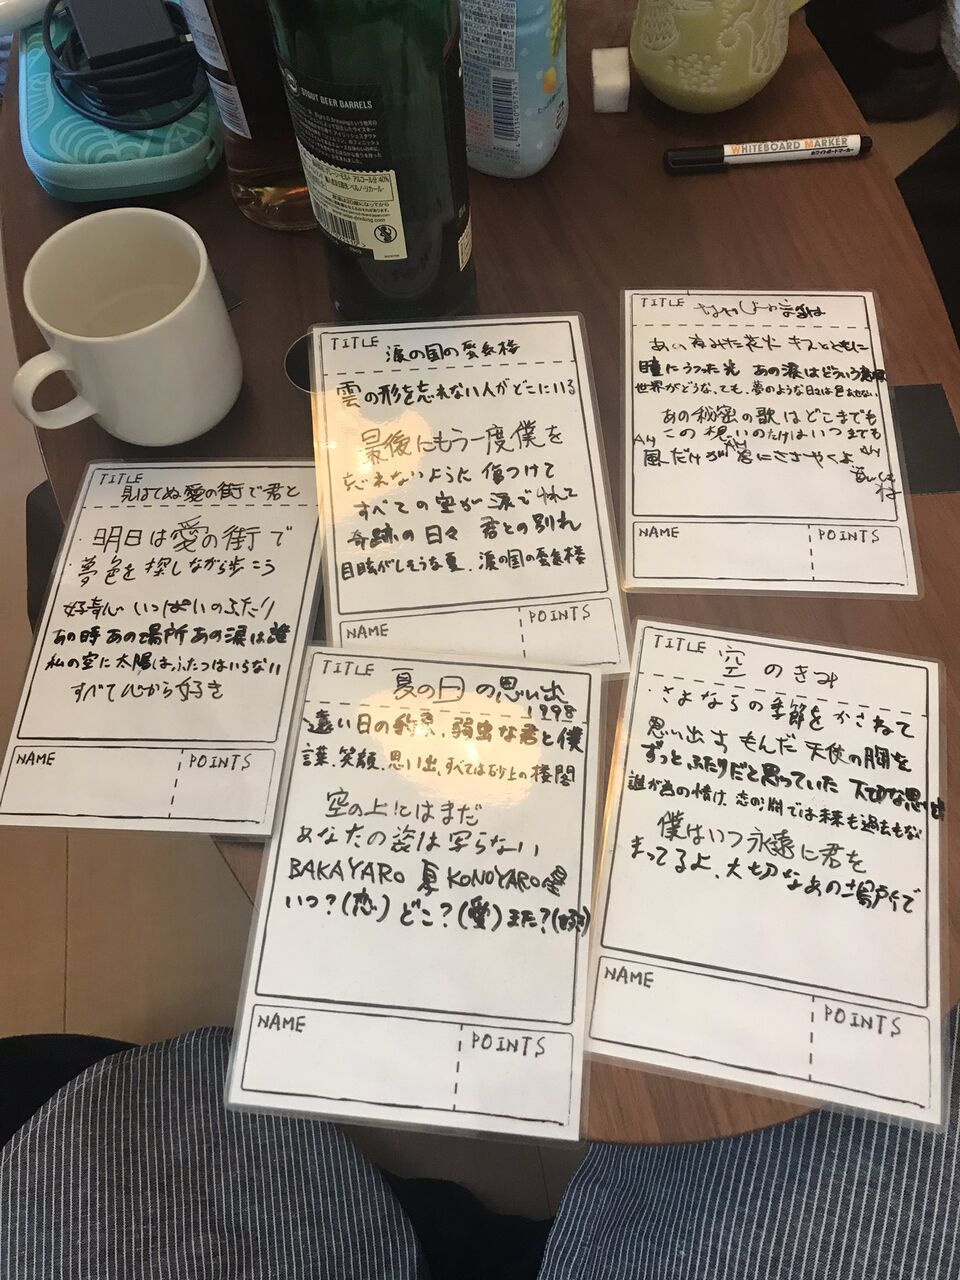 STOUT BEER BARRELS
WHITEBOARD MARKER
ホワイトボードマーカー
TITLE 涙の国の蜃気楼
雲の形を忘れない人がどこにいる
最後にもう一度僕を
忘れないように傷つけて
すべての空が涙で
奇跡の日々 君との別れ
目眩がしそうな夏、涙の国の蜃気楼
NAME
POINTS
TITLE
あの夜みた花火 キスとともに
瞳にうつった光 あの涙はどういう意味
世界がどうなっても、夢のような日々は色あせない
あの秘密の歌はどこまでも
AH この想いのたけはいつまでも
風だけが AH 君にささやくよ AH
NAME
POINTS
TITLE
見はてぬ愛の街で君と
・明日は愛の街で
・夢色を探しながら歩こう
好奇心いっぱいのふたり
あの時あの場所あの涙は誰
私の空に太陽はふたつはいらない
すべて心から好き
NAME
POINTS
TITLE 夏の日の思い出
1998
遠い日の約束、弱虫な君と僕
言葉、笑顔、思い出、すべては砂上の楼閣
空の上にはまだ
あなたの姿は写らない
BAKAYARO 夏 KONOYARO 星
いつ?(恋) どこ?(愛) また?(好き)
NAME
POINTS
TITLE 空のきみ
・さよならの季節をかさねて
思い出すもんだ 天使の胸を
ずっとふたりだと思っていた 大切な思い出
誰が為の情け、恋の間では未来も過去もな
僕はいつ永遠に君を
まってるよ、大切なあの場所で
NAME
POINTS